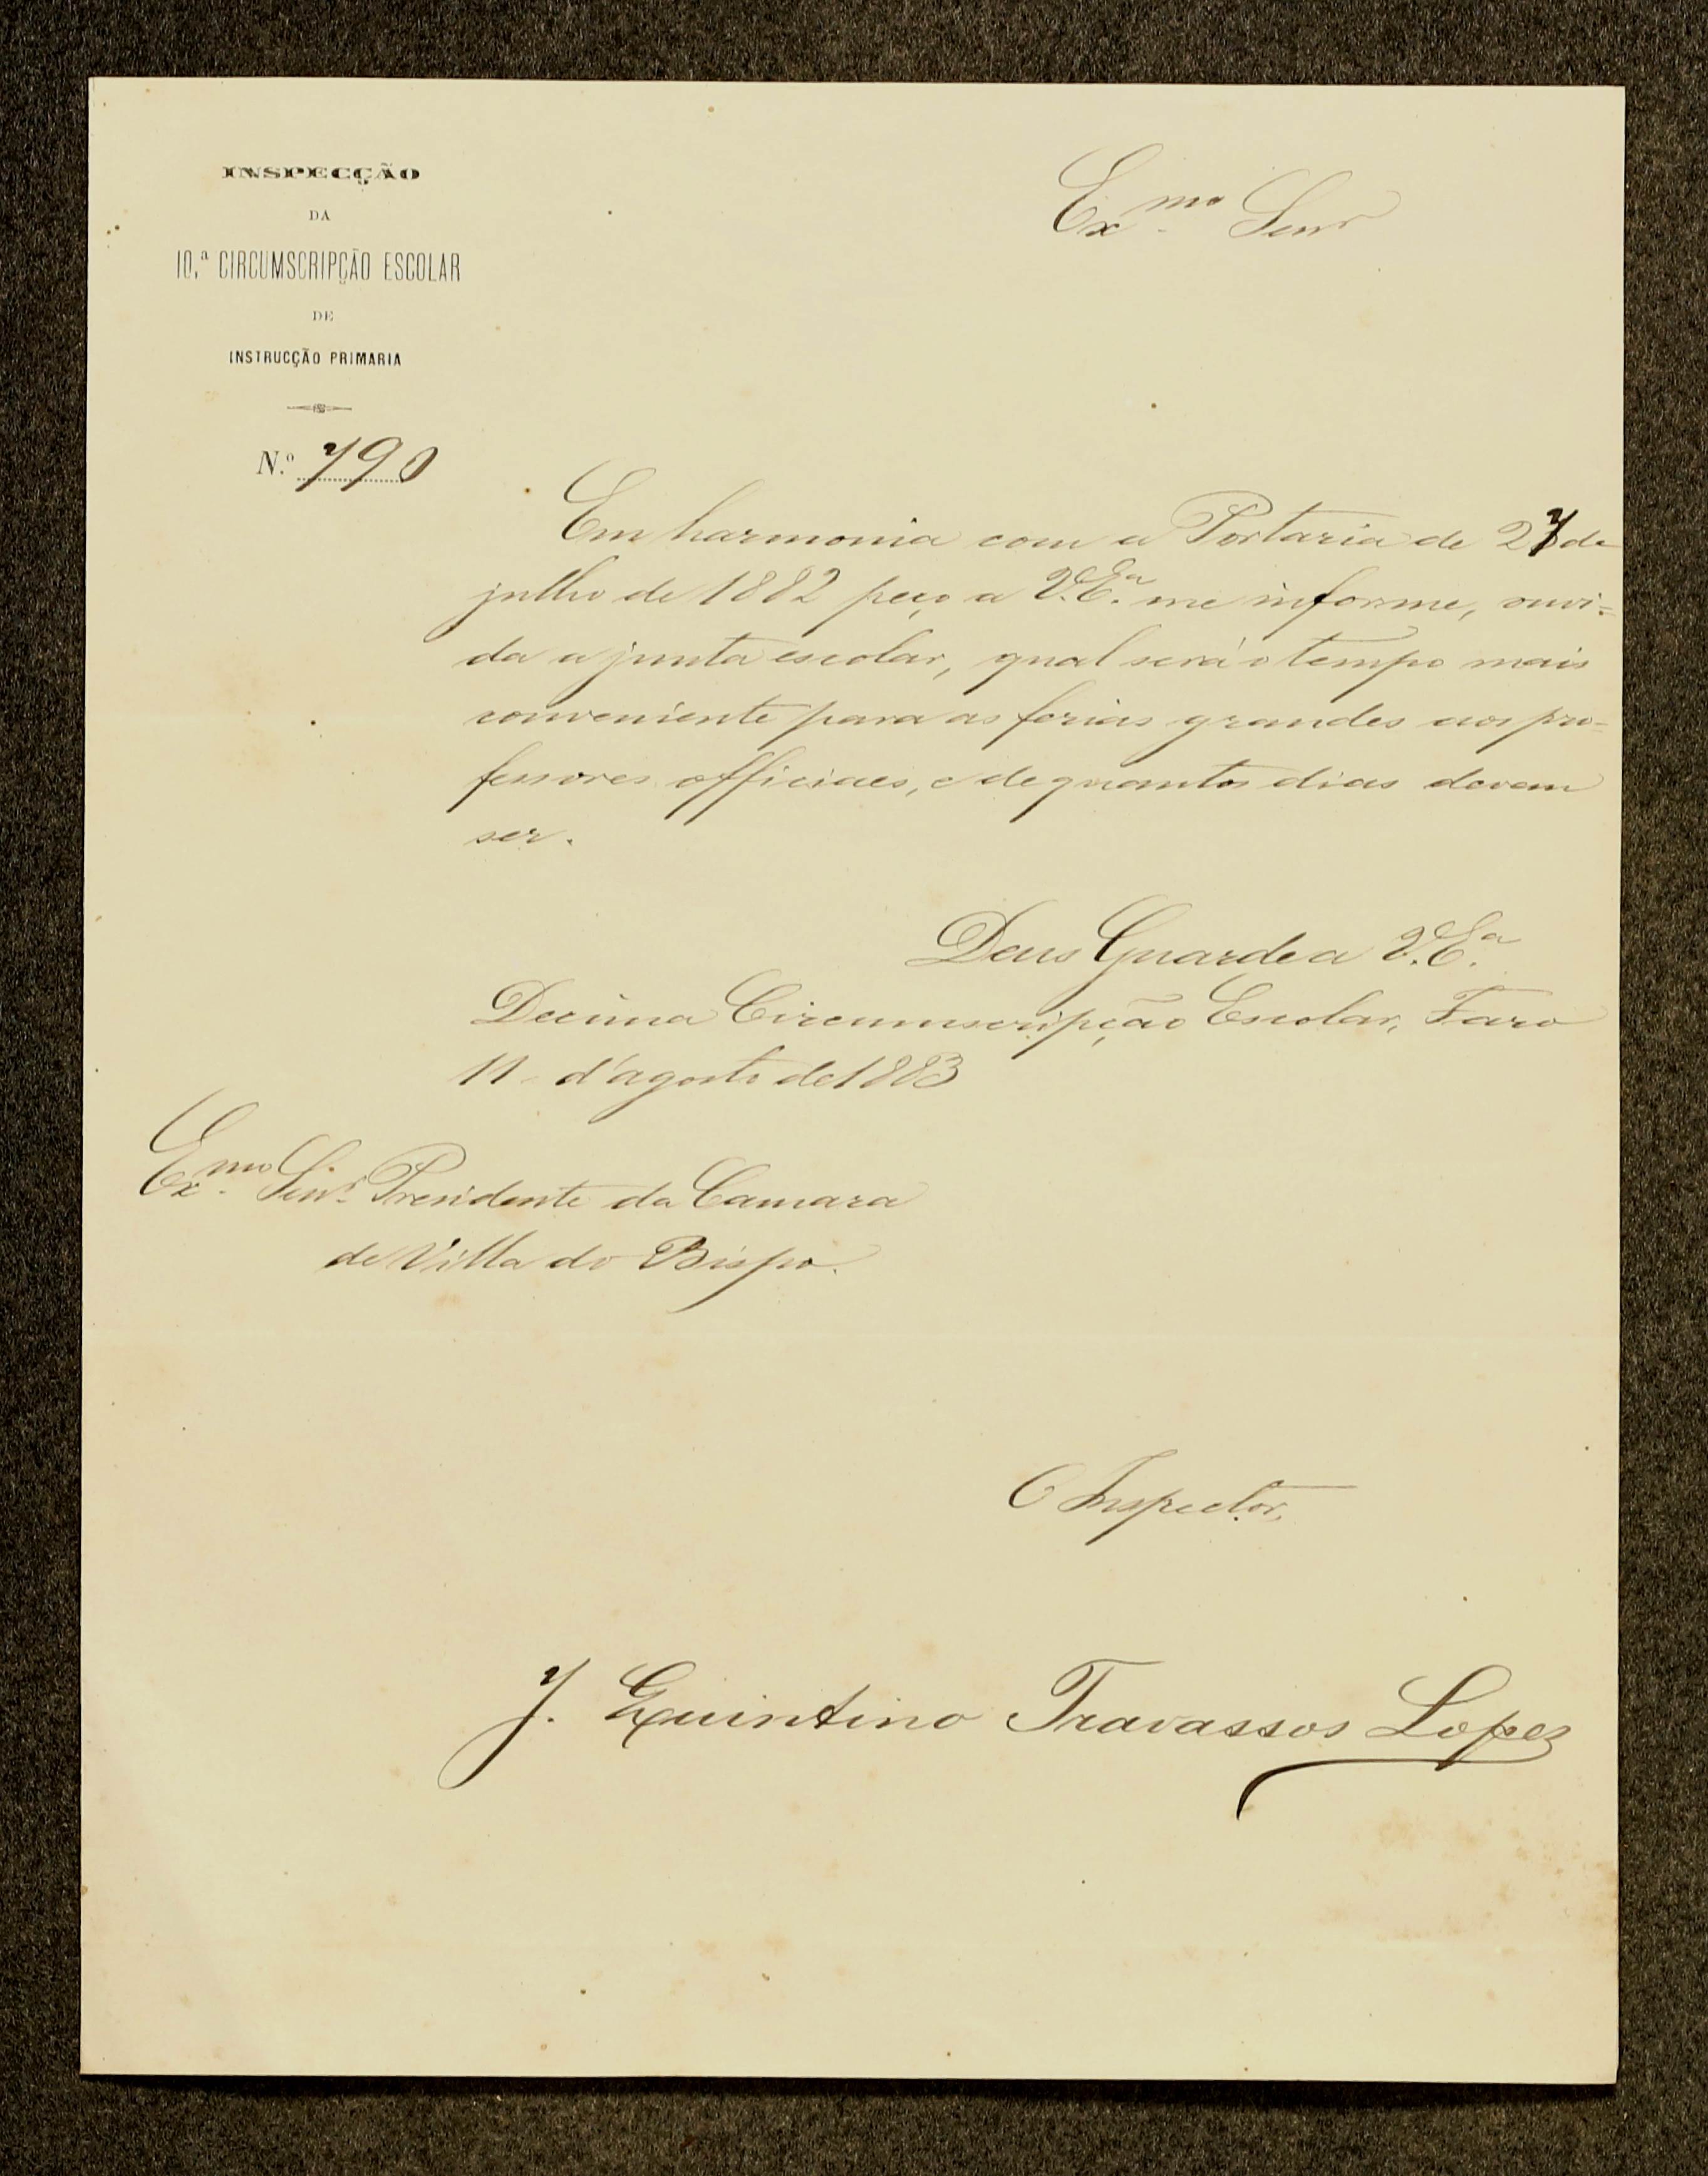 INSPECÇÃO
DA
10.ª CIRCUMSCRIPÇÃO ESCOLAR
DE
INSTRUCÇÃO PRIMARIA
N.º 790
Exmo Senr
Em harmonia com a Portaria de 27 de
julho de 1882 peço a V. Eª. me informe, ouvi=
da a junta escolar, qual será o tempo mais
conveniente para as ferias grandes aos pro=
fessores officiaes, e de quantos dias devem
ser.
Deus Guarde a V. Eª.
Decima Circumscripção Escolar, Faro
11 d'agosto de 1883
Exmo Senr. Presidente da Camara
de Villa do Bispo.
O Inspector,
J. Quintino Travassos Lopez